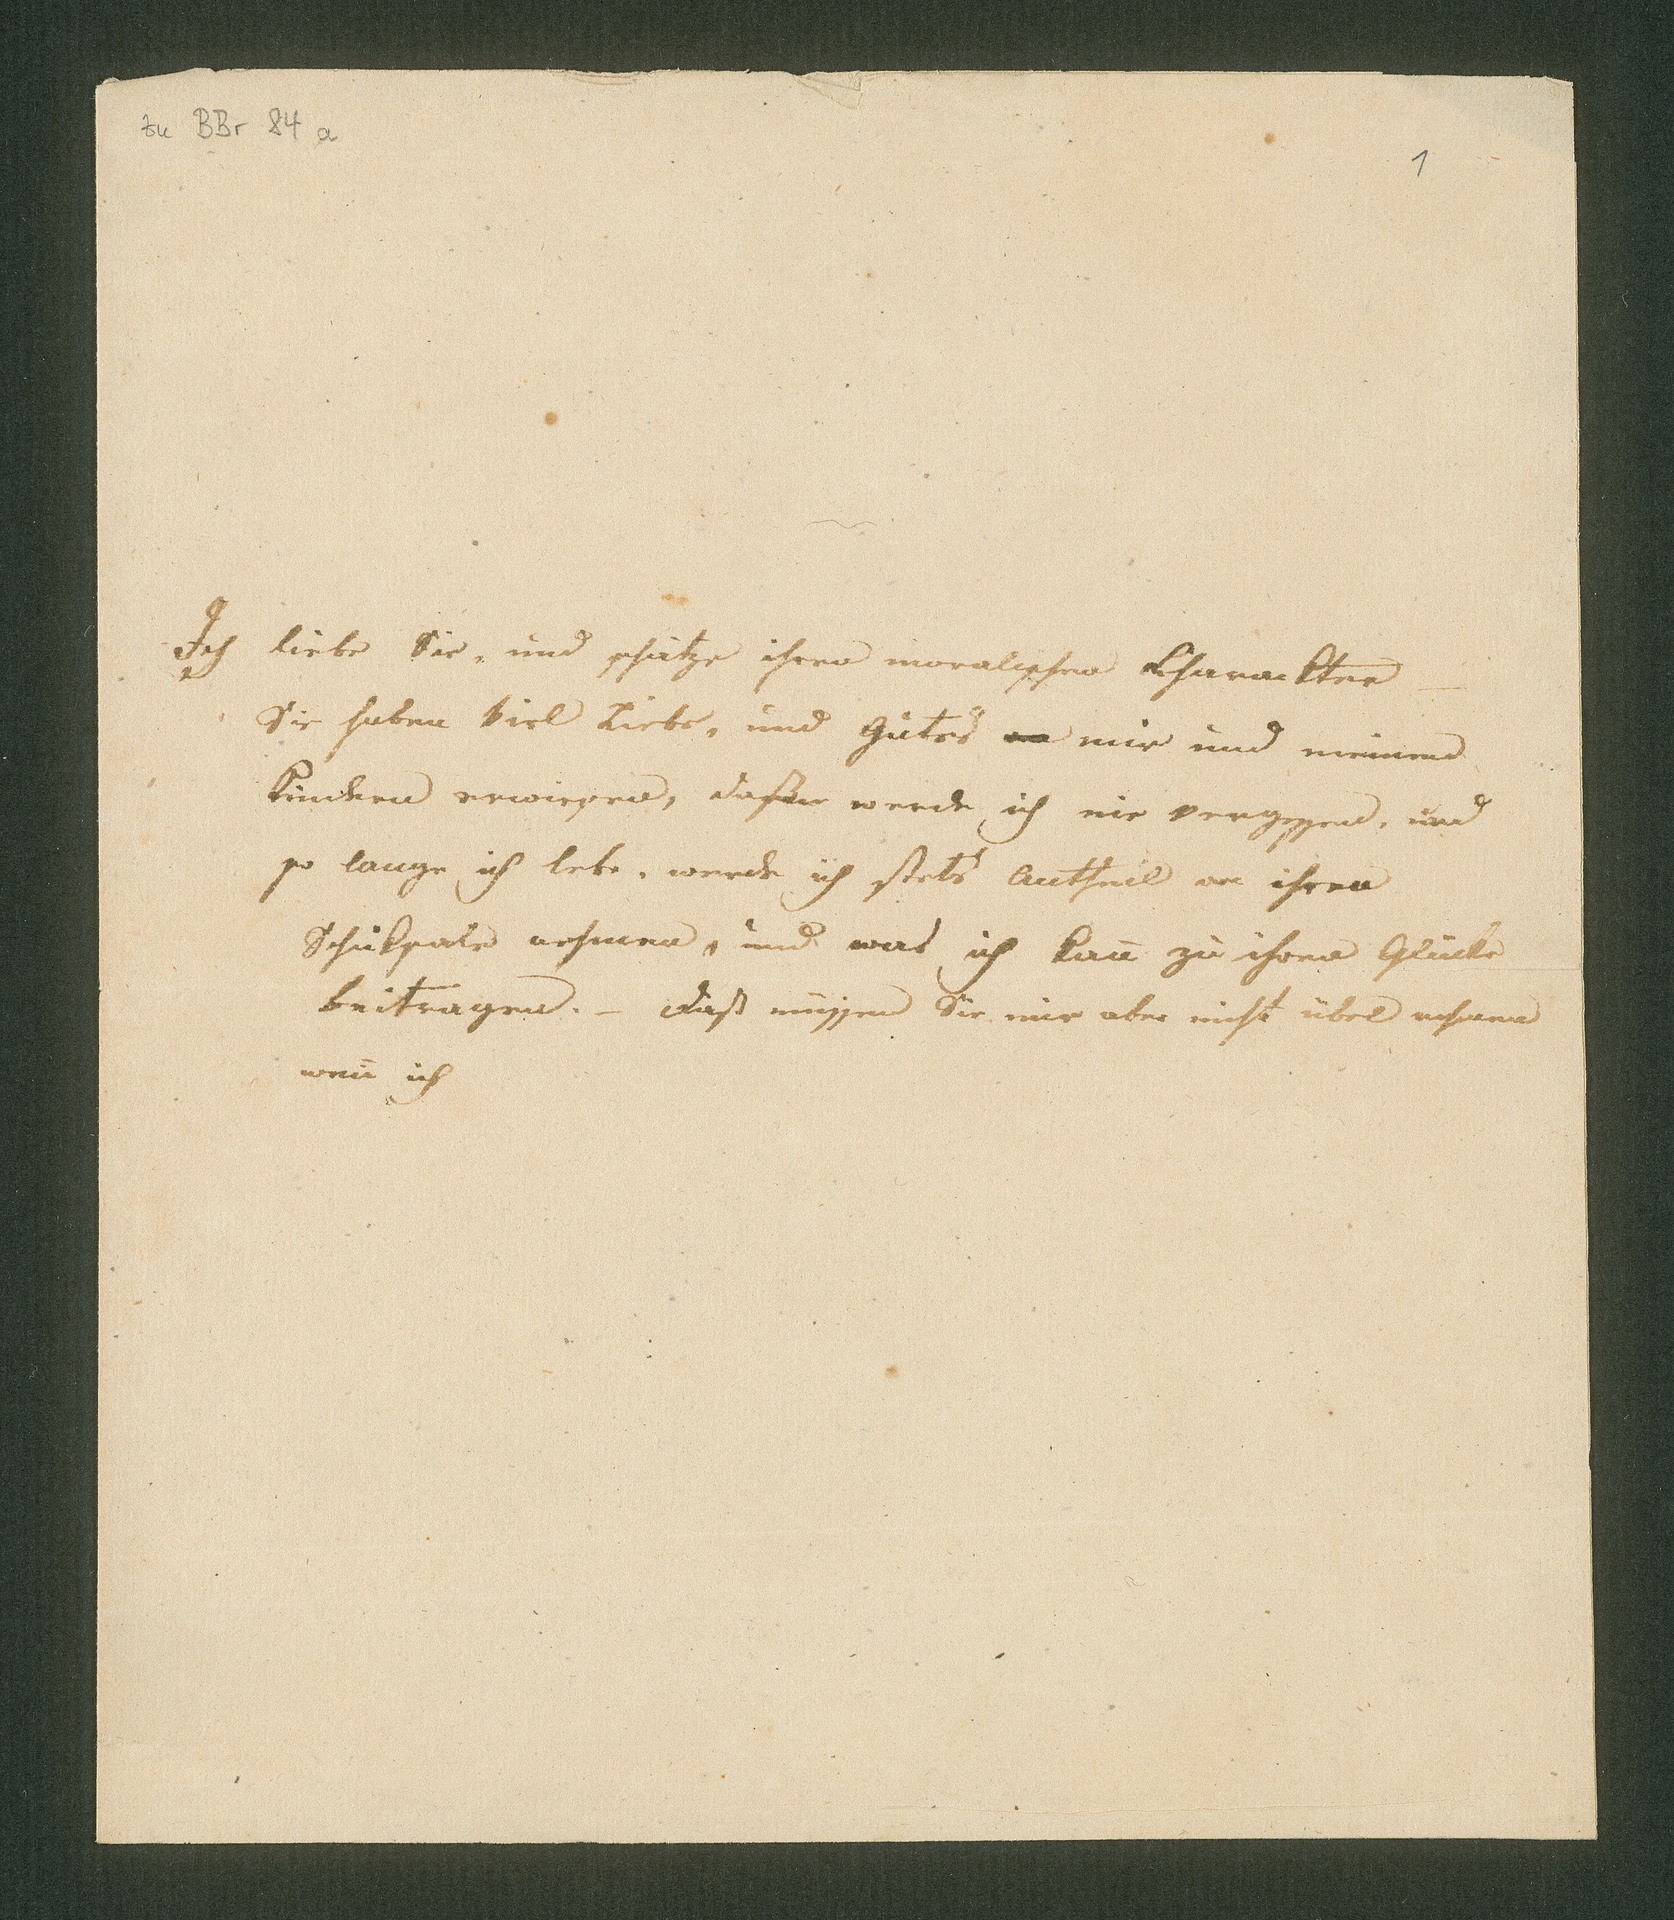 zu BBr 84 a
1
Ich liebe Sie, und schätze ihren moralischen Charackter —
Sie haben viel Liebe, und Gutes mir und meinen
Kindern erwiesen, daß werde ich nie vergessen, und
so lange ich lebe, werde ich stets Antheil an ihren
Schiksale nehmen, und was ich kan̄ zu ihren Glücke
beitragen. – daß müssen Sie mir aber nicht übel nehmen
wen̄ ich